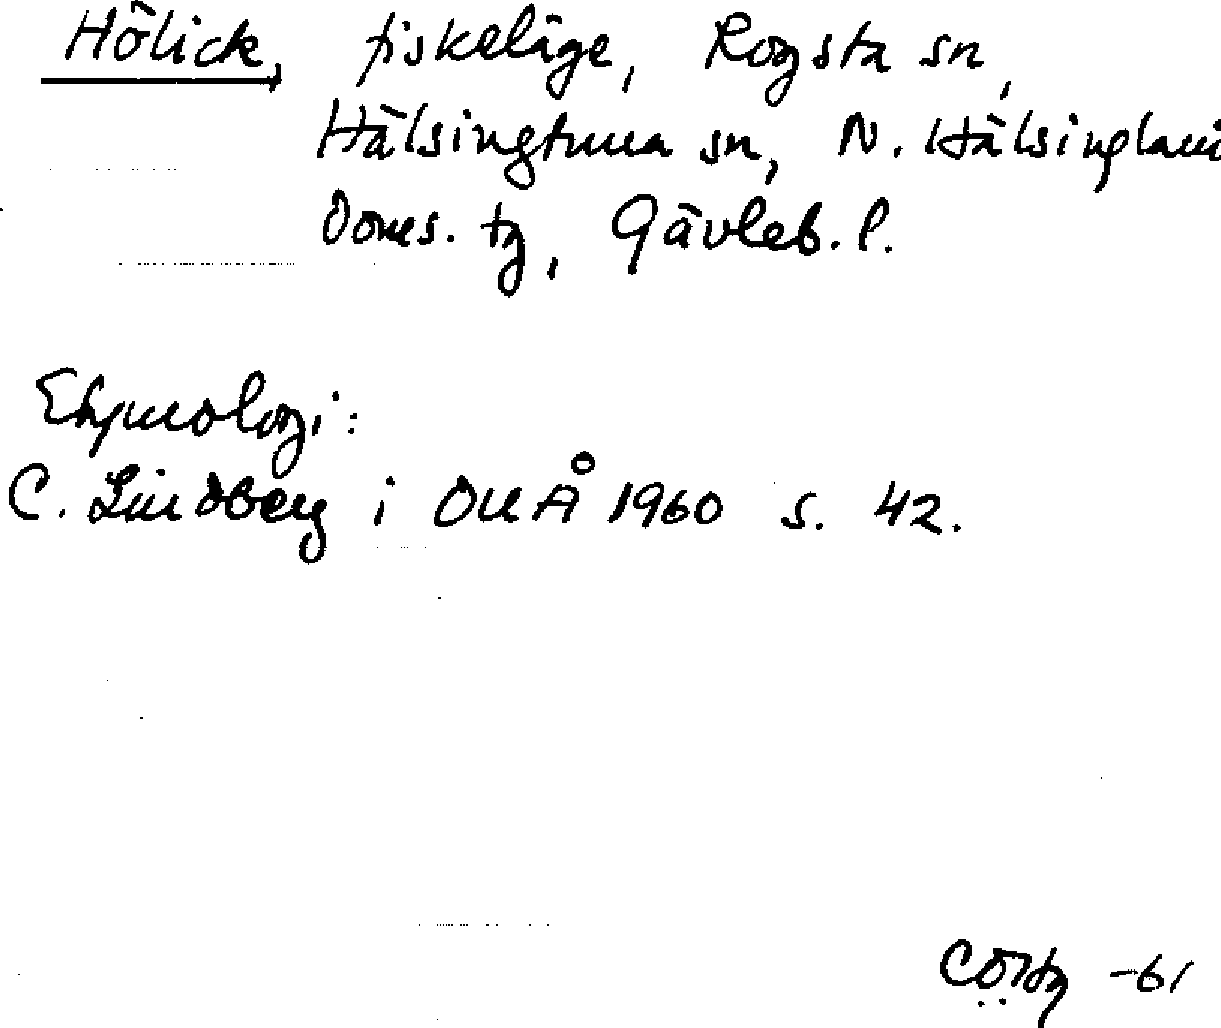 Hölick, fiskeläge, Rogsta sn,
Hälsingtuna sn, N. Hälsingland
Doms. tg, Gävleb. l.
Etymologi:
C. Lindberg i OUÅ 1960 s. 42.
-61